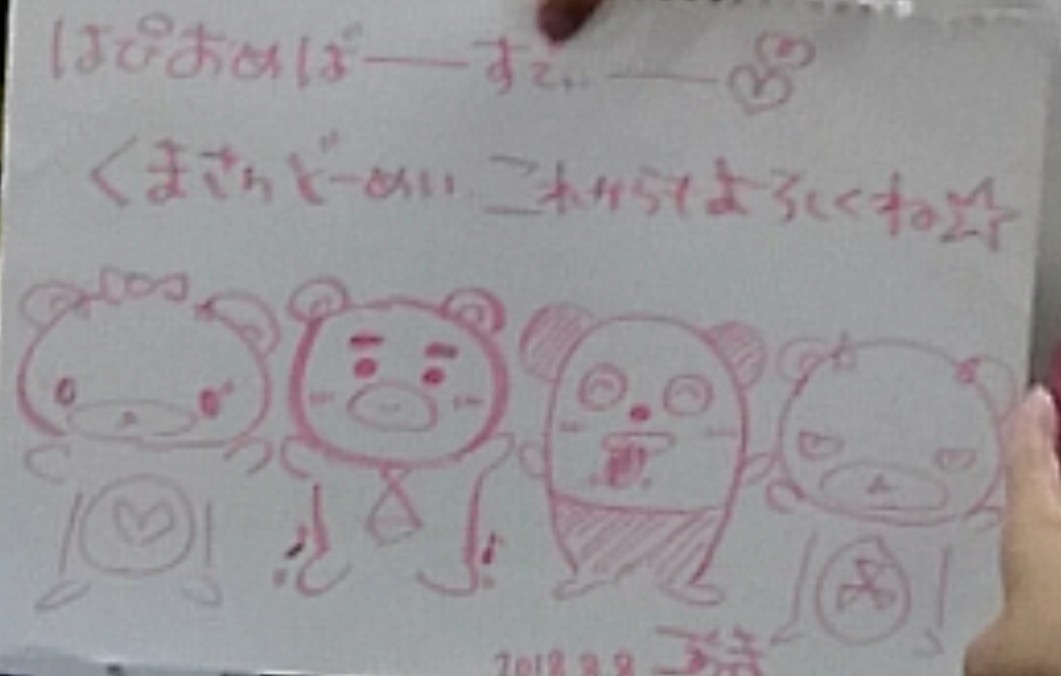 はぴおめばーすでぃー
くまさんどーめい これからもよろしくね☆
2018.8.8